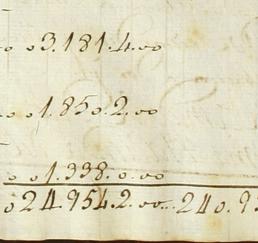 o o3.181.4.oo
o o1.850.2.oo
o o1.338.o.oo
o24.954.2.oo..240.9